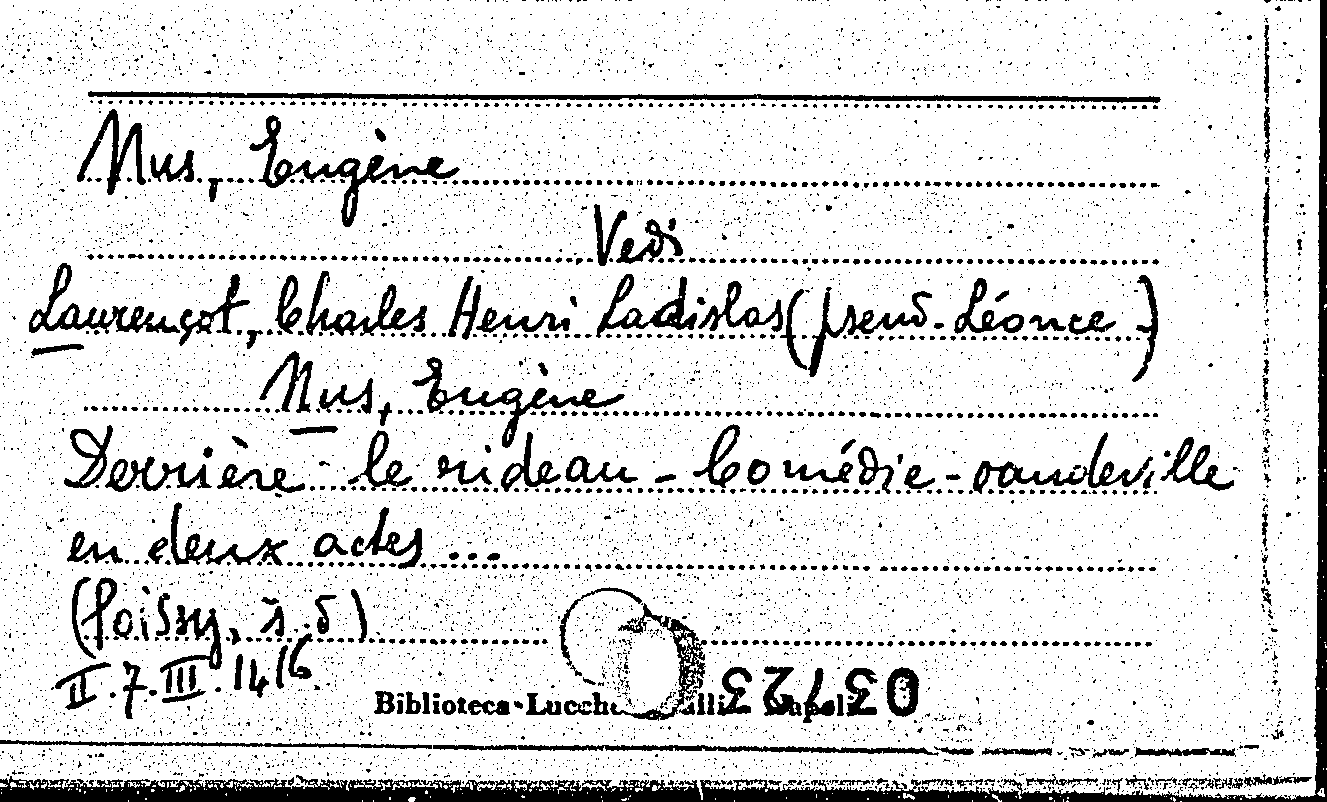 Nus, Eugène
Vedi
Laurençot, Charles Henri Ladislas (pseud. Léonce)
Nus, Eugène
Derrière le rideau - Comédie-vaudeville
en deux actes ...
(Poissy, s.d)
II.7.III.14 16.
Biblioteca Napoli